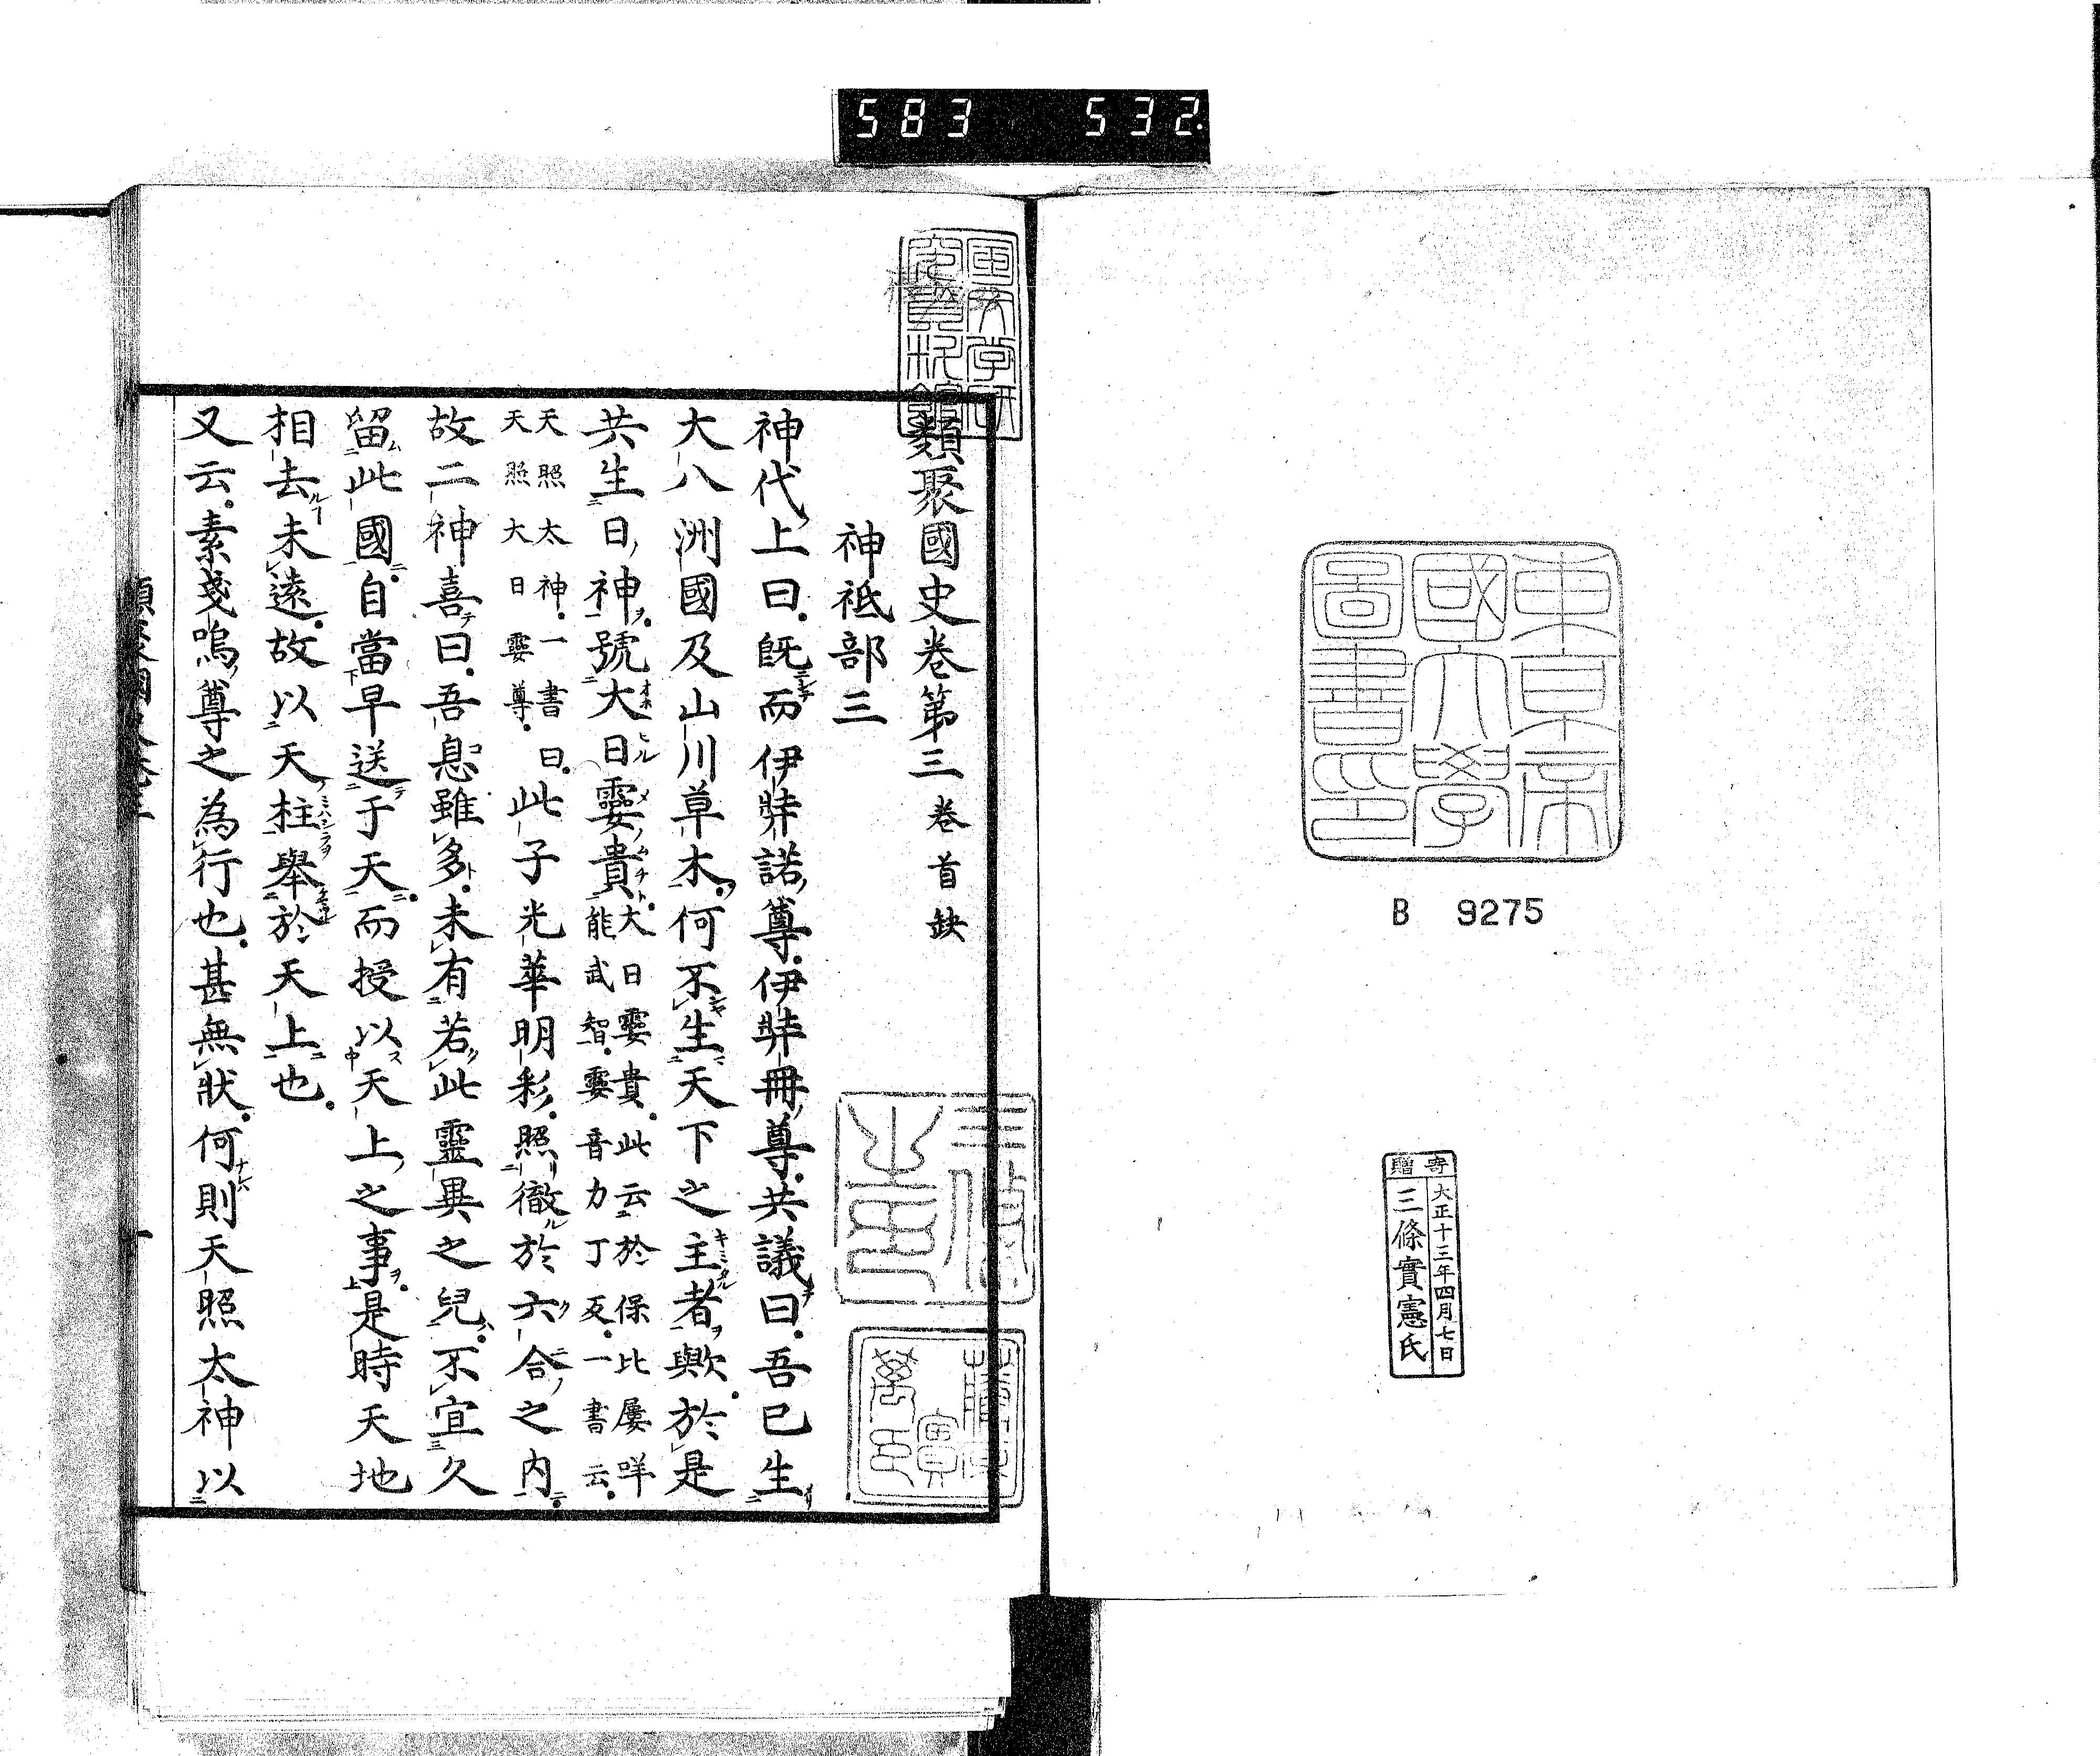 583 532
東京帝
國大學
圖書印
B 9275
寄贈
大正十三年四月七日
三條實憲氏
類聚國史卷第三 卷首缺
神祇部三
神代上曰。旣而伊弉諾尊。伊弉冊尊。共議曰。吾已生
大八洲國及山川草木。何不生天下之主者歟。於是
共生日神。號大日孁貴。
大日孁貴。此云於保比屢咩
能武智。孁音力丁反。一書云。
天照太神。一書曰。
天照大日孁尊。
此子光華明彩。照徹於六合之內。
故二神喜曰。吾息雖多。未有若此靈異之兒。不宜久
留此國。自當早送于天。而授以天上之事。是時天地
相去未遠。故以天柱舉於天上也。
又云。素戔嗚尊之為行也。甚無狀。何則天照太神以